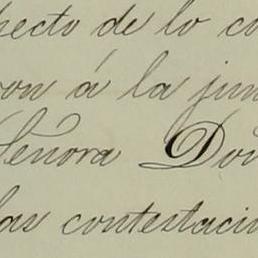 pecto de lo co
on á la jun
Señora Do
las contestaci